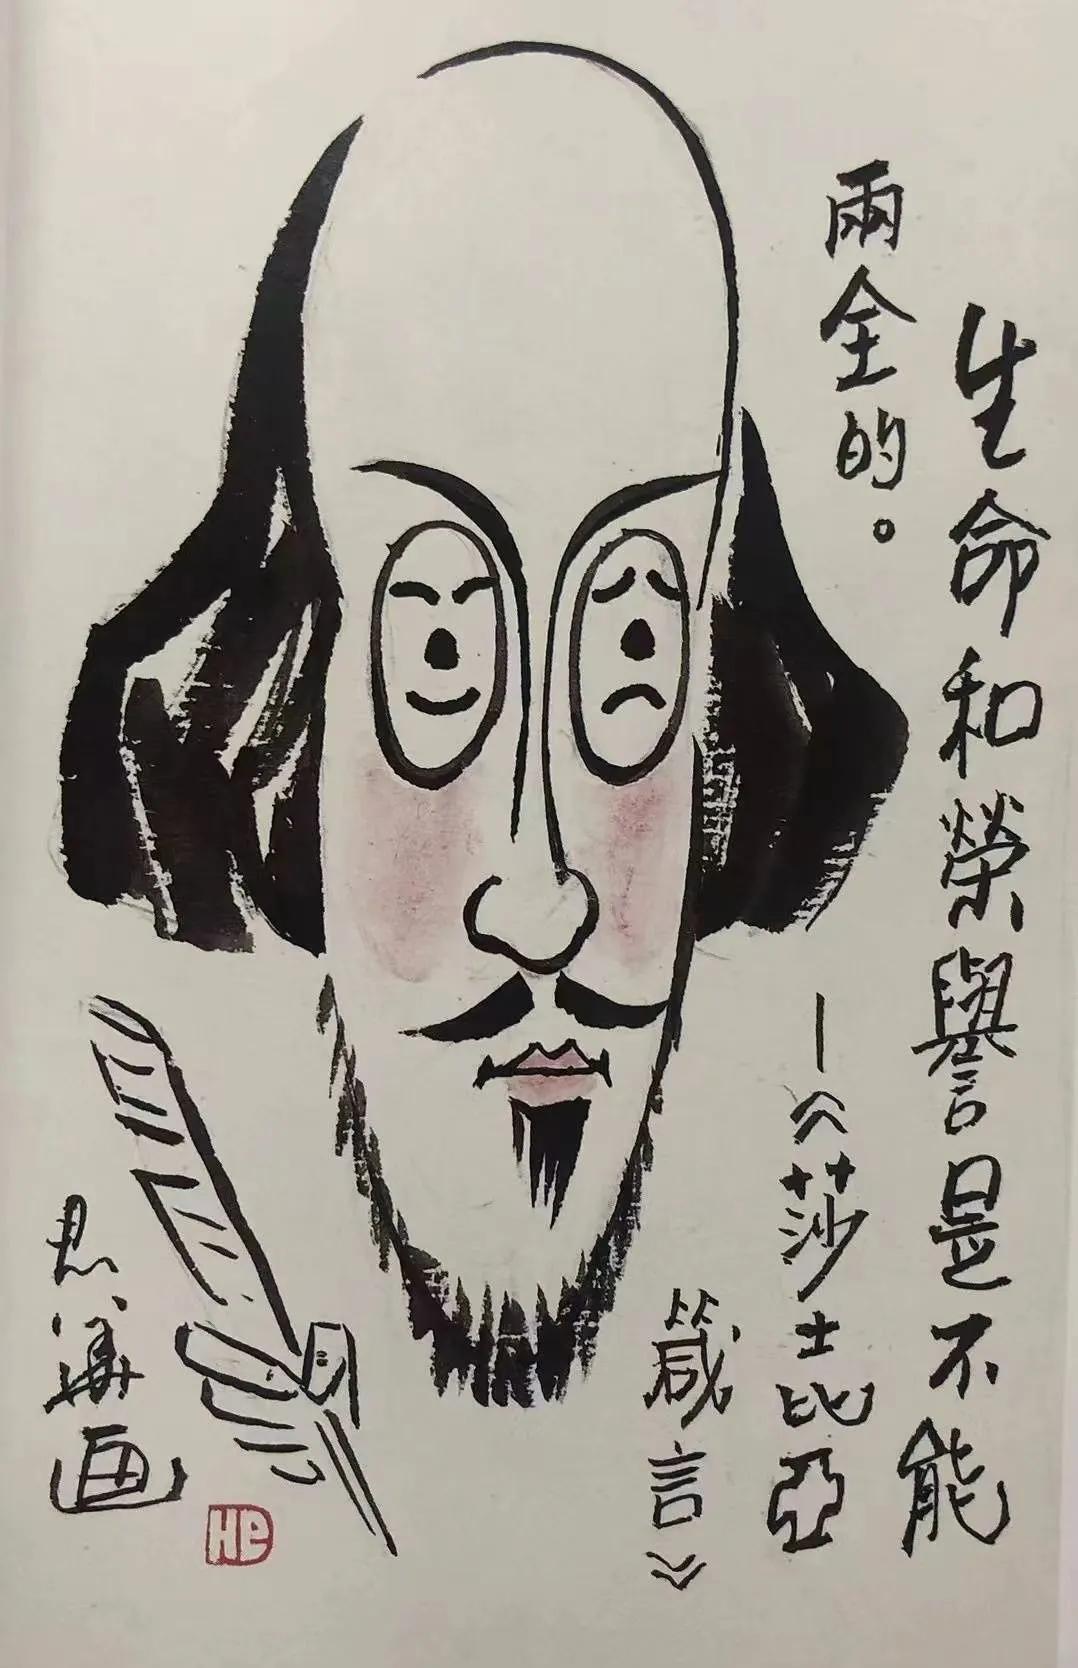 生命和榮譽是不能
兩全的。
—《莎士比亞
箴言》
画